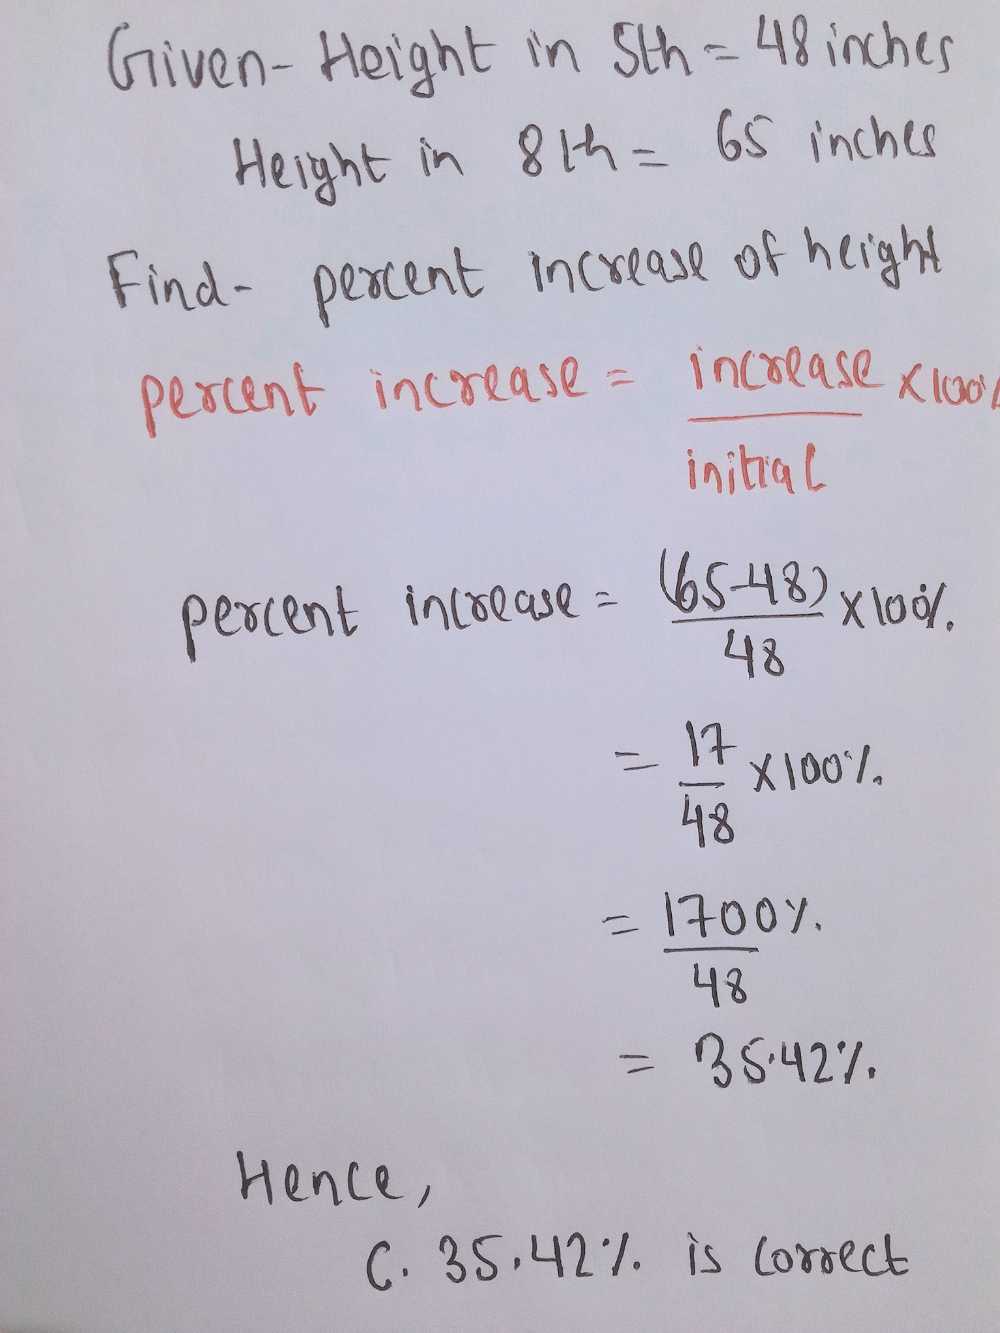 Given- Height in 5th = 48 inches
Height in 8th = 65 inches
Find- percent increase of height
percent increase = increase × 100%
initial
percent increase = (65-48) × 100%
48
= 17 × 100%
48
= 1700%
48
= 35.42%
Hence,
C. 35.42% is correct